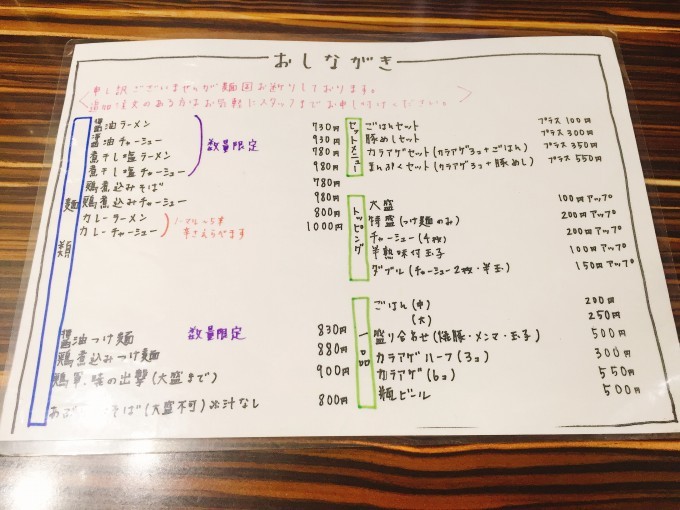 おしながき
申し訳ございませんが麺固お断りしております。
追加注文のある方はお気軽にスタッフまでお申し付けください。
麺類
醤油ラーメン 730円
醤油チャーシュー 930円
煮干し塩ラーメン 780円
煮干し塩チャーシュー 980円
数量限定
鶏煮込みそば 780円
鶏煮込みチャーシュー 980円
カレーラーメン 800円
カレーチャーシュー 1000円
ノーマル~5辛
辛さえらべます
醤油つけ麺 830円
数量限定
鶏煮込みつけ麺 880円
鶏軍、味の出撃(大盛まで) 900円
そば(大盛不可)※汁なし 800円
セットメニュー
ごはんセット プラス100円
豚めしセット プラス300円
カラアゲセット(カラアゲ3コ+ごはん) プラス350円
まんぷくセット(カラアゲ3コ+豚めし) プラス550円
トッピング
大盛 100円アップ
特盛(つけ麺のみ) 200円アップ
チャーシュー(4枚) 200円アップ
半熟味付玉子 100円アップ
ダブル(チャーシュー2枚・半玉) 150円アップ
一品
ごはん(中) 200円
(大) 250円
盛り合わせ(豚・メンマ・玉子) 500円
カラアゲハーフ(3コ) 300円
カラアゲ(6コ) 550円
瓶ビール 500円